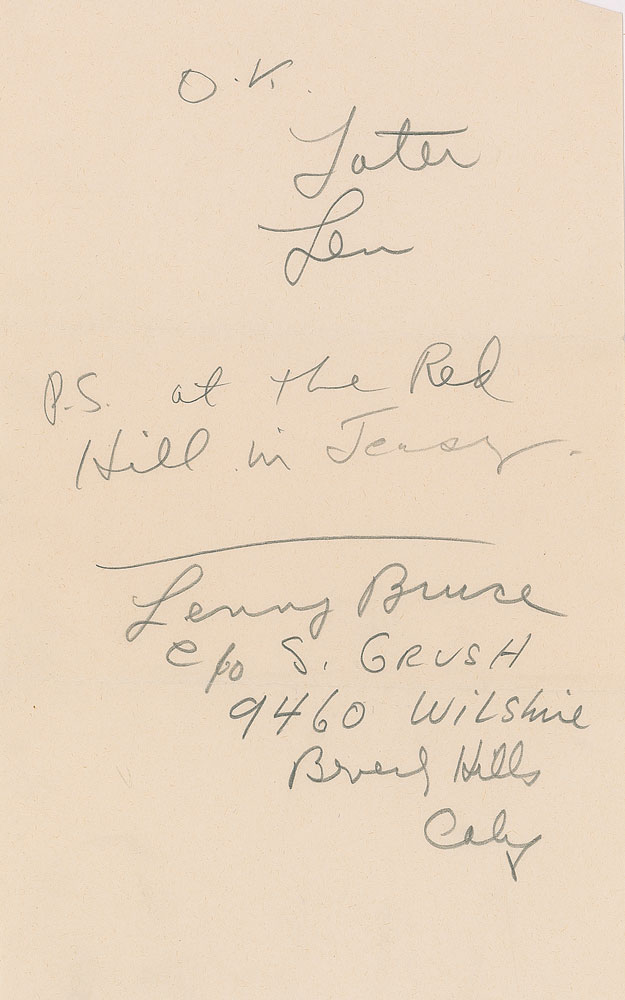 O.K.
Later
Len
P.S. at the Red
Hill in Jersey.
Lenny Bruce
c/o S. GRUSH
9460 Wilshire
Beverly Hills
Calif